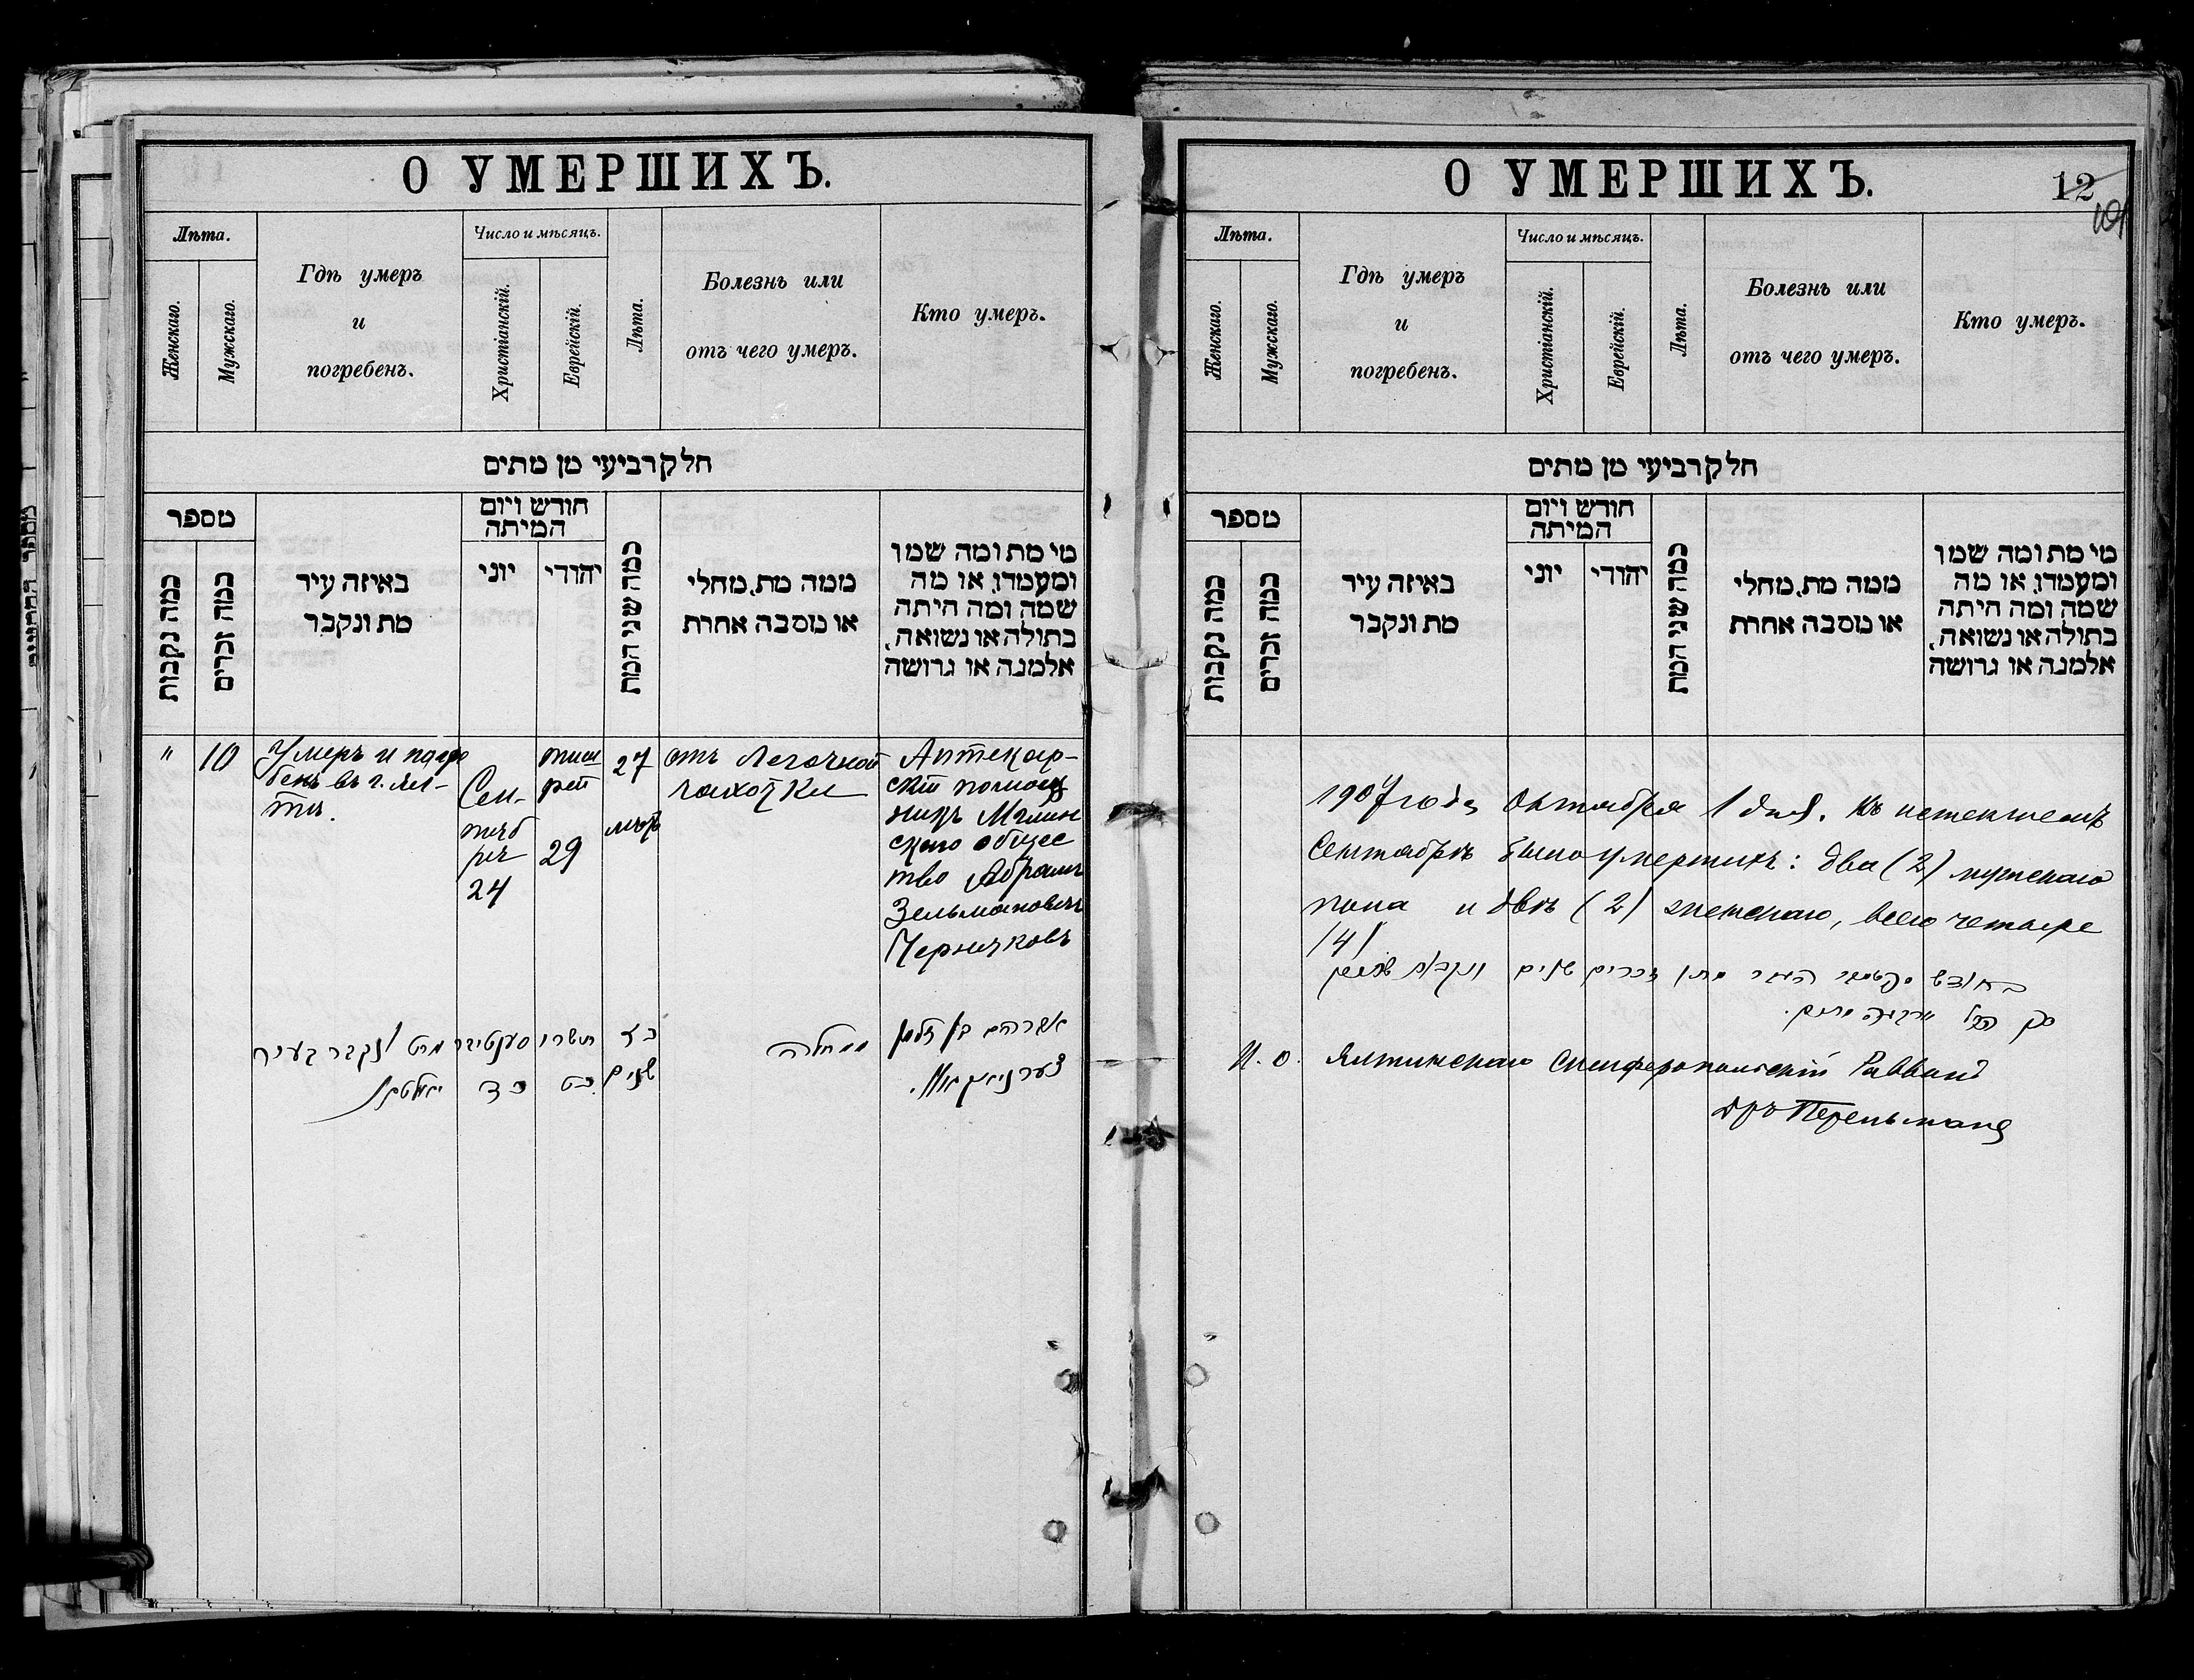 О УМЕРШИХЪ.
Лѣта.
Женскаго.
Мужскаго.
Гдѣ умеръ
и
погребенъ.
Число и мѣсяцъ.
Христіанскій.
Еврейскій.
Лѣта.
Болезнь или
отъ чего умеръ.
Кто умеръ.
חלק רביעי מן מתים
מספר
כמה נקבות
כמה זכרים
באיזה עיר
מת ונקבר
חודש ויום
המיתה
יוני
יהודי
כמה שני המת
ממה מת, מחלי
או מסבה אחרת
מי מת ומה שמו
ומעמדו, או מה
שמה ומה היתה
בתולה או נשואה,
אלמנה או גרושה
" 10
Умеръ и погре
бенъ въ г. Ял-
тѣ.
Сен-
тяб
ря
24
тиш
рей
29
27
лѣтъ
отъ Легочной
чахотки
Аптекар-
скій помощ
никъ Мглин
скаго общес
тво Абрамъ
Зельмановичъ
Чернячковъ
אברהם בן זלמן
מחלה
תשרי
ונקבר בעיר
שנים
כט
כד
О УМЕРШИХЪ.
12
Лѣта.
Женскаго.
Мужскаго.
Гдѣ умеръ
и
погребенъ.
Число и мѣсяцъ.
Христіанскій.
Еврейскій.
Лѣта.
Болезнь или
отъ чего умеръ.
Кто умеръ.
חלק רביעי מן מתים
מספר
כמה נקבות
כמה זכרים
באיזה עיר
מת ונקבר
חודש ויום
המיתה
יוני
יהודי
כמה שני המת
ממה מת, מחלי
או מסבה אחרת
מי מת ומה שמו
ומעמדו, או מה
שמה ומה היתה
בתולה או נשואה,
אלמנה או גרושה
1907 года Октября 1 дня. Въ истекшемъ
Сентябрѣ было умершихъ: два (2) мужскаго
пола и двѣ (2) женскаго, всего четыре
/4/
בחודש זכרים שנים
סך הכל ארבעה מתים.
И. о. Ялтинскаго Симферопольскій Раввинъ
Дръ Перельманъ